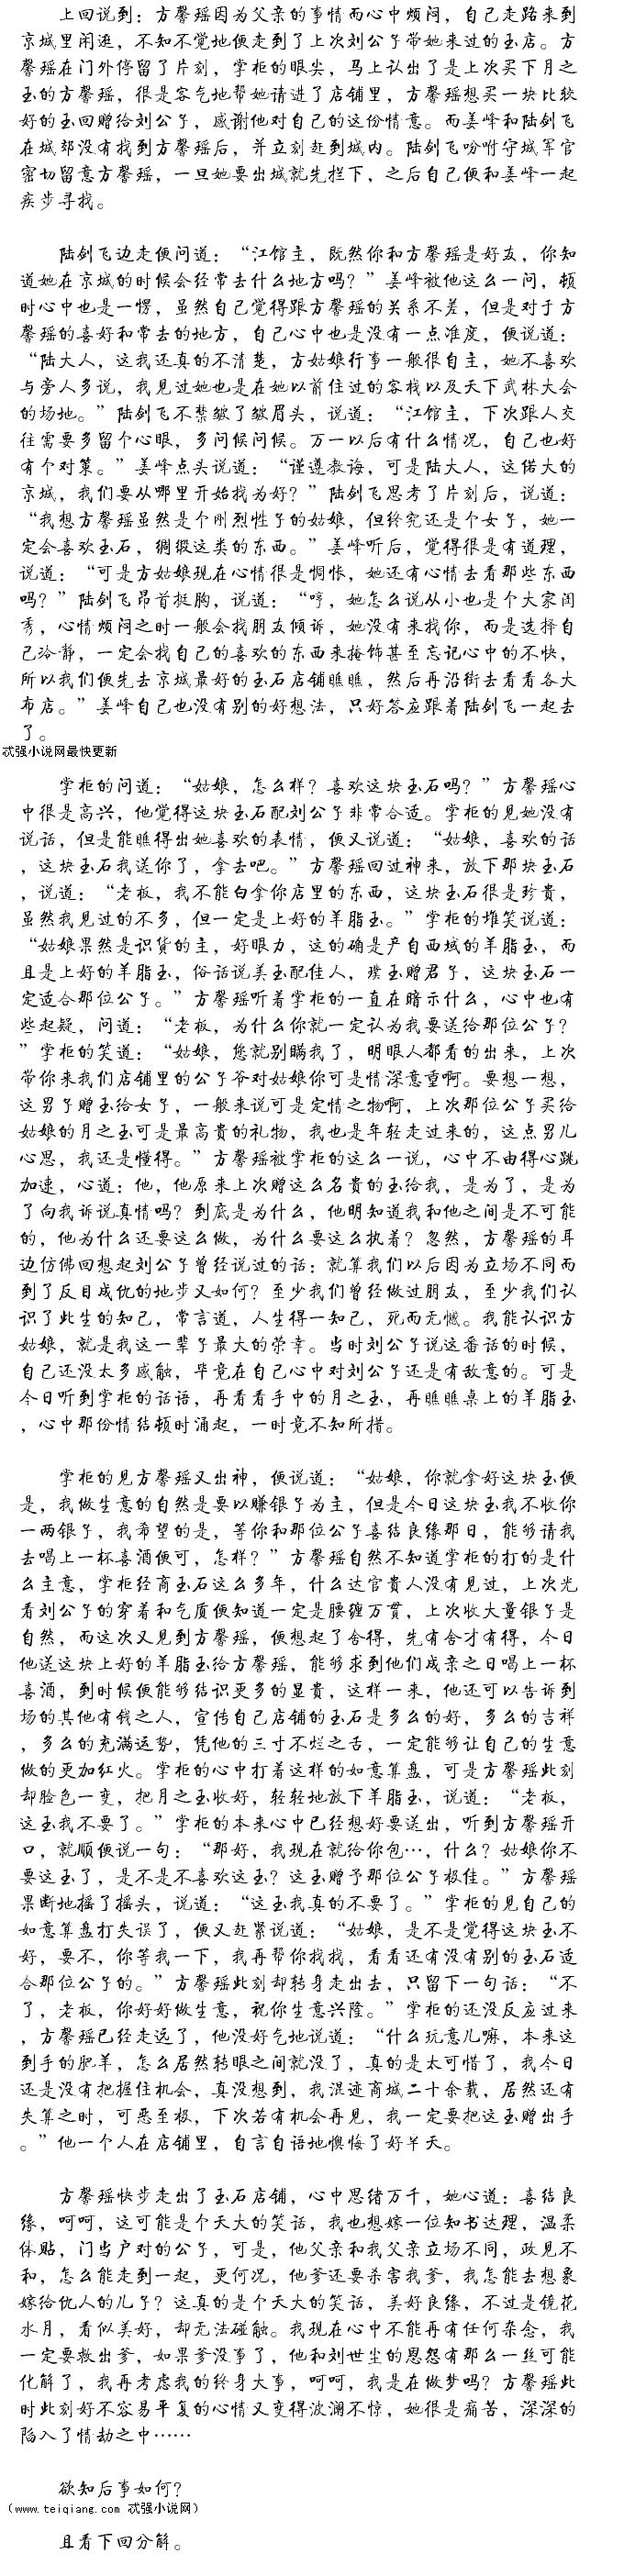 上回说到：方馨瑶因为父亲的事情而心中烦闷，自己走路来到
京城里闲逛，不知不觉地便走到了上次刘公子带她来过的玉店。方
馨瑶在门外停留了片刻，掌柜的眼尖，马上认出了是上次买下月之
玉的方馨瑶，很是客气地帮她请进了店铺里，方馨瑶想买一块比较
好的玉回赠给刘公子，感谢他对自己的这份情意。而姜峰和陆剑飞
在城郊没有找到方馨瑶后，并立刻赶到城内。陆剑飞吩咐守城军官
密切留意方馨瑶，一旦她要出城就先拦下，之后自己便和姜峰一起
疾步寻找。
陆剑飞边走便问道：“江馆主，既然你和方馨瑶是好友，你知
道她在京城的时候会经常去什么地方吗？”姜峰被他这么一问，顿
时心中也是一愣，虽然自己觉得跟方馨瑶的关系不差，但是对于方
馨瑶的喜好和常去的地方，自己心中也是没有一点准度，便说道：
“陆大人，这我还真的不清楚，方姑娘行事一般很自主，她不喜欢
与旁人多说，我见过她也是在她以前住过的客栈以及天下武林大会
的场地。”陆剑飞不禁皱了皱眉头，说道：“江馆主，下次跟人交
往需要多留个心眼，多问候问候。万一以后有什么情况，自己也好
有个对策。”姜峰点头说道：“谨遵教诲，可是陆大人，这偌大的
京城，我们要从哪里开始找为好？”陆剑飞思考了片刻后，说道：
“我想方馨瑶虽然是个刚烈性子的姑娘，但终究还是个女子，她一
定会喜欢玉石，绸缎这类的东西。”姜峰听后，觉得很是有道理，
说道：“可是方姑娘现在心情很是惆怅，她还有心情去看那些东西
吗？”陆剑飞昂首挺胸，说道：“哼，她怎么说从小也是个大家闺
秀，心情烦闷之时一般会找朋友倾诉，她没有来找你，而是选择自
己冷静，一定会找自己的喜欢的东西来掩饰甚至忘记心中的不快，
所以我们便先去京城最好的玉石店铺瞧瞧，然后再沿街去看看各大
布店。”姜峰自己也没有别的好想法，只好答应跟着陆剑飞一起去
了。
忒强小说网最快更新
掌柜的问道：“姑娘，怎么样？喜欢这块玉石吗？”方馨瑶心
中很是高兴，他觉得这块玉石配刘公子非常合适。掌柜的见她没有
说话，但是能瞧得出她喜欢的表情，便又说道：“姑娘，喜欢的话
，这块玉石我送你了，拿去吧。”方馨瑶回过神来，放下那块玉石
，说道：“老板，我不能白拿你店里的东西，这块玉石很是珍贵，
虽然我见过的不多，但一定是上好的羊脂玉。”掌柜的堆笑说道：
“姑娘果然是识货的主，好眼力，这的确是产自西域的羊脂玉，而
且是上好的羊脂玉，俗话说美玉配佳人，璞玉赠君子，这块玉石一
定适合那位公子。”方馨瑶听着掌柜的一直在暗示什么，心中也有
些起疑，问道：“老板，为什么你就一定认为我要送给那位公子？
”掌柜的笑道：“姑娘，您就别瞒我了，明眼人都看的出来，上次
带你来我们店铺里的公子爷对姑娘你可是情深意重啊。要想一想，
这男子赠玉给女子，一般来说可是定情之物啊，上次那位公子买给
姑娘的月之玉可是最高贵的礼物，我也是年轻走过来的，这点男儿
心思，我还是懂得。”方馨瑶被掌柜的这么一说，心中不由得心跳
加速，心道：他，他原来上次赠这么名贵的玉给我，是为了，是为
了向我诉说真情吗？到底是为什么，他明知道我和他之间是不可能
的，他为什么还要这么做，为什么要这么执着？忽然，方馨瑶的耳
边仿佛回想起刘公子曾经说过的话：就算我们以后因为立场不同而
到了反目成仇的地步又如何？至少我们曾经做过朋友，至少我们认
识了此生的知己，常言道，人生得一知己，死而无憾。我能认识方
姑娘，就是我这一辈子最大的荣幸。当时刘公子说这番话的时候，
自己还没太多感触，毕竟在自己心中对刘公子还是有敌意的。可是
今日听到掌柜的话语，再看看手中的月之玉，再瞧瞧桌上的羊脂玉
，心中那份情结顿时涌起，一时竟不知所措。
掌柜的见方馨瑶又出神，便说道：“姑娘，你就拿好这块玉便
是，我做生意的自然是要以赚银子为主，但是今日这块玉我不收你
一两银子，我希望的是，等你和那位公子喜结良缘那日，能够请我
去喝上一杯喜酒便可，怎样？”方馨瑶自然不知道掌柜的打的是什
么主意，掌柜经商玉石这么多年，什么达官贵人没有见过，上次光
看刘公子的穿着和气质便知道一定是腰缠万贯，上次收大量银子是
自然，而这次又见到方馨瑶，便想起了舍得，先有舍才有得，今日
他送这块上好的羊脂玉给方馨瑶，能够求到他们成亲之日喝上一杯
喜酒，到时候便能够结识更多的显贵，这样一来，他还可以告诉到
场的其他有钱之人，宣传自己店铺的玉石是多么的好，多么的吉祥
，多么的充满运势，凭他的三寸不烂之舌，一定能够让自己的生意
做的更加红火。掌柜的心中打着这样的如意算盘，可是方馨瑶此刻
却脸色一变，把月之玉收好，轻轻地放下羊脂玉，说道：“老板，
这玉我不要了。”掌柜的本来心中已经想好要送出，听到方馨瑶开
口，就顺便说一句：“那好，我现在就给你包…，什么？姑娘你不
要这玉了，是不是不喜欢这玉？这玉赠予那位公子极佳。”方馨瑶
果断地摇了摇头，说道：“这玉我真的不要了。”掌柜的见自己的
如意算盘打失误了，便又赶紧说道：“姑娘，是不是觉得这块玉不
好，要不，你等我一下，我再帮你找找，看看还有没有别的玉石适
合那位公子的。”方馨瑶此刻却转身走出去，只留下一句话：“不
了，老板，你好好做生意，祝你生意兴隆。”掌柜的还没反应过来
，方馨瑶已经走远了，他没好气地说道：“什么玩意儿嘛，本来这
到手的肥羊，怎么居然转眼之间就没了，真的是太可惜了，我今日
还是没有把握住机会，真没想到，我混迹商城二十余载，居然还有
失算之时，可恶至极，下次若有机会再见，我一定要把这玉赠出手
。”他一个人在店铺里，自言自语地懊悔了好半天。
方馨瑶快步走出了玉石店铺，心中思绪万千，她心道：喜结良
缘，呵呵，这可能是个天大的笑话，我也想嫁一位知书达理，温柔
体贴，门当户对的公子，可是，他父亲和我父亲立场不同，政见不
和，怎么能走到一起，更何况，他爹还要杀害我爹，我怎能去想象
嫁给仇人的儿子？这真的是个天大的笑话，美好良缘，不过是镜花
水月，看似美好，却无法碰触。我现在心中不能再有任何杂念，我
一定要救出爹，如果爹没事了，他和刘世尘的恩怨有那么一丝可能
化解了，我再考虑我的终身大事，呵呵，我是在做梦吗？方馨瑶此
时此刻好不容易平复的心情又变得波澜不惊，她很是痛苦，深深的
陷入了情劫之中……
欲知后事如何？
（www.teiqiang.com 忒强小说网）
且看下回分解。